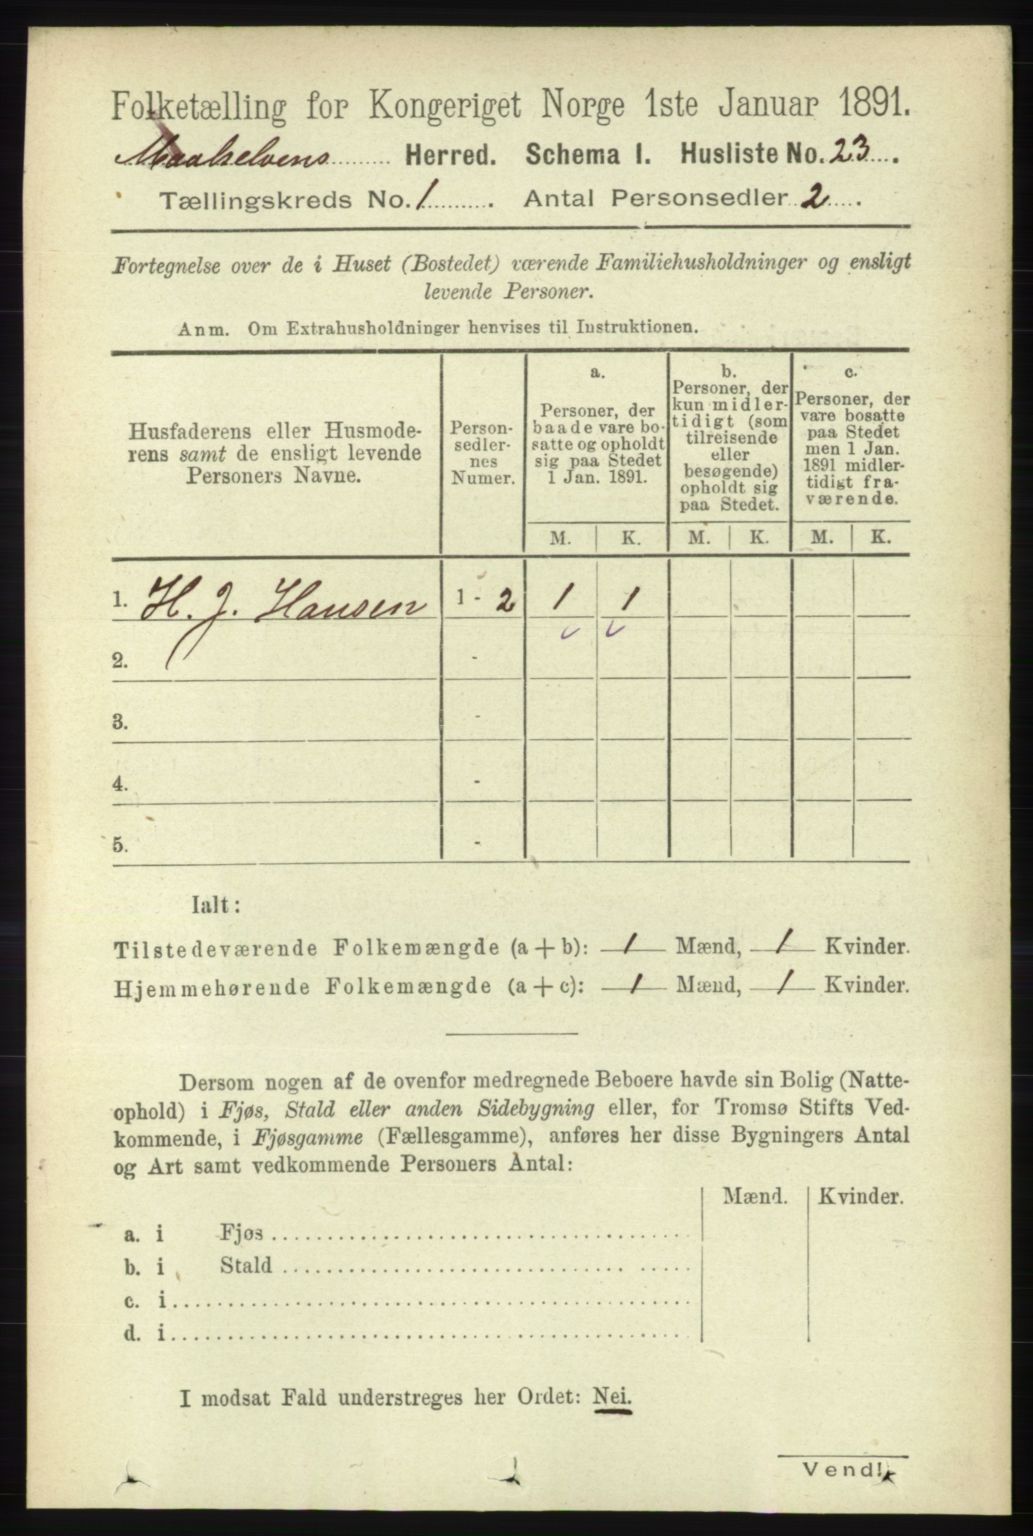 Folketælling for Kongeriget Norge 1ste Januar 1891.
Maalselvens Herred. Schema I. Husliste No. 23.
Tællingskreds No. 1. Antal Personsedler 2.
Fortegnelse over de i Huset (Bostedet) værende Familiehusholdninger og ensligt
levende Personer.
Anm. Om Extrahusholdninger henvises til Instruktionen.
Husfaderens eller Husmode-
rens samt de ensligt levende
Personers Navne.
Person-
sedler-
nes
Numer.
a.
Personer, der
baade vare bo-
satte og opholdt
sig paa Stedet
1 Jan. 1891.
b.
Personer, der
kun midler-
tidigt (som
tilreisende
eller
besøgende)
opholdt sig
paa Stedet.
c.
Personer, der
vare bosatte
paa Stedet
men 1 Jan.
1891 midler-
tidigt fra-
værende.
M. K. M. K. M. K.
1. H. J. Hansen 1 - 2 1 1
2. -
3. -
4. -
5. -
Ialt:
Tilstedeværende Folkemængde (a + b): 1 Mænd, 1 Kvinder.
Hjemmehørende Folkemængde (a + c): 1 Mænd, 1 Kvinder.
Dersom nogen af de ovenfor medregnede Beboere havde sin Bolig (Natte-
ophold) i Fjøs, Stald eller anden Sidebygning eller, for Tromsø Stifts Ved-
kommende, i Fjøsgamme (Fællesgamme), anføres her disse Bygningers Antal
og Art samt vedkommende Personers Antal:
Mænd. Kvinder.
a. i Fjøs
b. i Stald
c. i
d. i
I modsat Fald understreges her Ordet: Nei.
Vend!